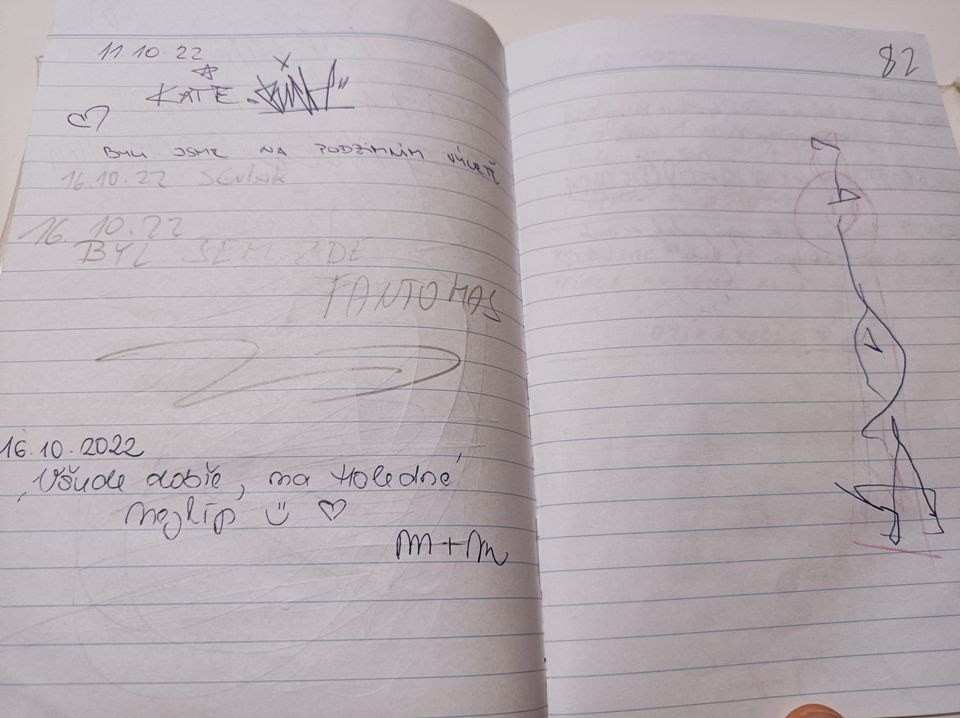 11.10.22
KATE
BYLI JSME NA PODZIMNÍM VÝLETĚ
16.10.22
16.10.22
BYL SEM ZDE
FANTOMAS
16.10.2022
Všude dobře, na Holedné
nejlíp
m+m
82